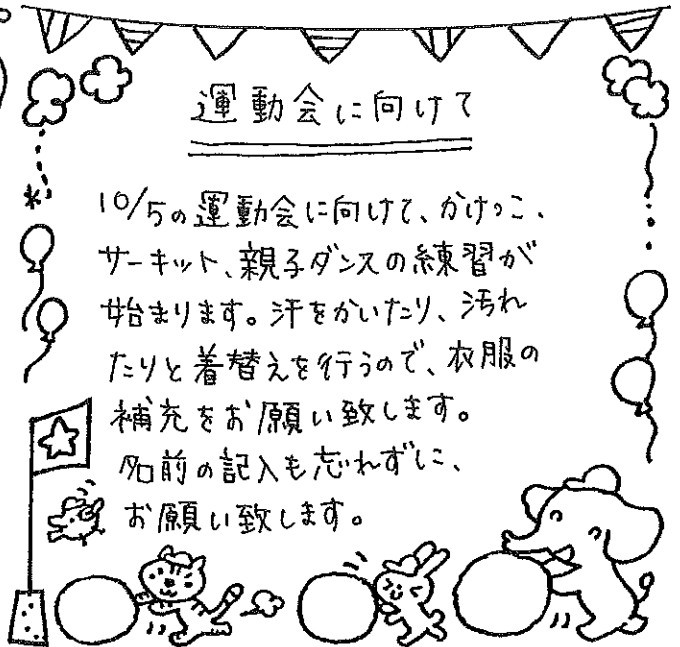 運動会に向けて
10/5の運動会に向けて、かけっこ、
サーキット、親子ダンスの練習が
始まります。汗をかいたり、汚れ
たりと着替えを行うので、衣服の
補充をお願い致します。
名前の記入も忘れずに、
お願い致します。